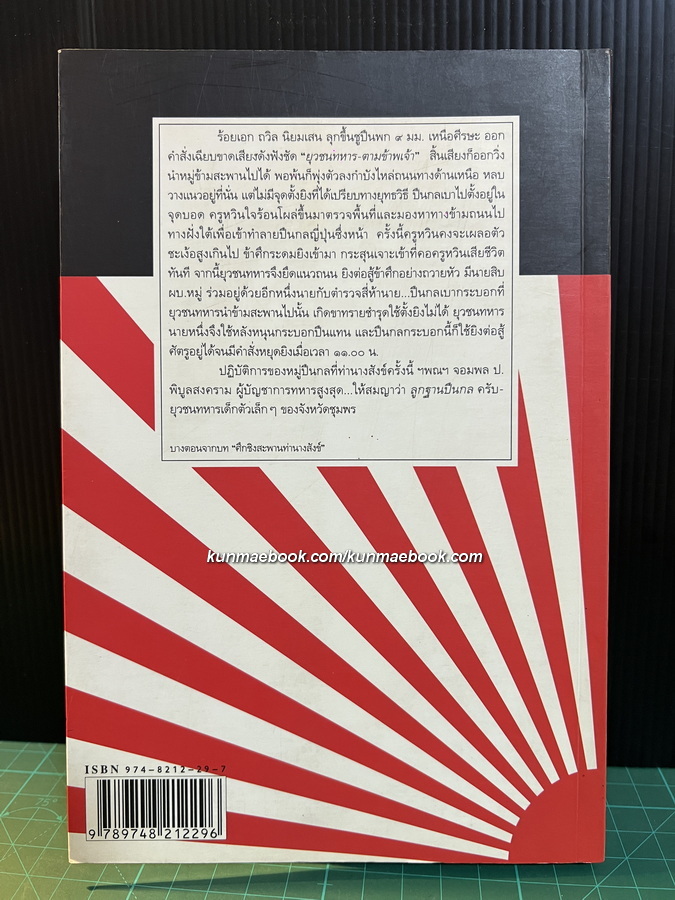 ร้อยเอก ถวิล นิยมเสน ลุกขึ้นชูปืนพก ๙ มม. เหนือศีรษะ ออก
คำสั่งเฉียบขาดเสียงดังฟังชัด "ยุวชนทหาร-ตามข้าพเจ้า" สิ้นเสียงก็ออกวิ่ง
นำหมู่ข้ามสะพานไปได้ พอพ้นก็พุ่งตัวลงกำบังไหล่ถนนทางด้านเหนือ หลบ
วางแนวอยู่ที่นั่น แต่ไม่มีจุดตั้งยิงที่ได้เปรียบทางยุทธวิธี ปืนกลเบาไปตั้งอยู่ใน
จุดบอด ครูหวินใจร้อนโผล่ขึ้นมาตรวจพื้นที่และมองหาทางข้ามถนนไป
ทางฝั่งใต้เพื่อเข้าทำลายปืนกลญี่ปุ่นซึ่งหน้า ครั้งนี้ครูหวินคงจะเผลอตัว
ชะเง้อสูงเกินไป ข้าศึกระดมยิงเข้ามา กระสุนเจาะเข้าที่คอครูหวินเสียชีวิต
ทันที จากนี้ยุวชนทหารจึงยึดแนวถนน ยิงต่อสู้ข้าศึกอย่างถวายหัว มีนายสิบ
ผบ.หมู่ ร่วมอยู่ด้วยอีกหนึ่งนายกับตำรวจสี่ห้านาย...ปืนกลเบากระบอกที่
ยุวชนทหารนำข้ามสะพานไปนั้น เกิดขาทรายชำรุดใช้ตั้งยิงไม่ได้ ยุวชนทหาร
นายหนึ่งจึงใช้หลังหนุนกระบอกปืนแทน และปืนกลกระบอกนี้ก็ใช้ยิงต่อสู้
ศัตรูอยู่ได้จนมีคำสั่งหยุดยิงเมื่อเวลา ๑๑.๐๐ น.
ปฏิบัติการของหมู่ปืนกลที่ท่านางสังข์ครั้งนี้ ฯพณฯ จอมพล ป.
พิบูลสงคราม ผู้บัญชาการทหารสูงสุด...ให้สมญาว่า ลูกฐานปืนกล ครับ-
ยุวชนทหารเด็กตัวเล็กๆ ของจังหวัดชุมพร
บางตอนจากบท "ศึกชิงสะพานท่านางสังข์"
kunmaebook.com/kunmaebook.com
ISBN 974-8212-29-7
9 789748 212296